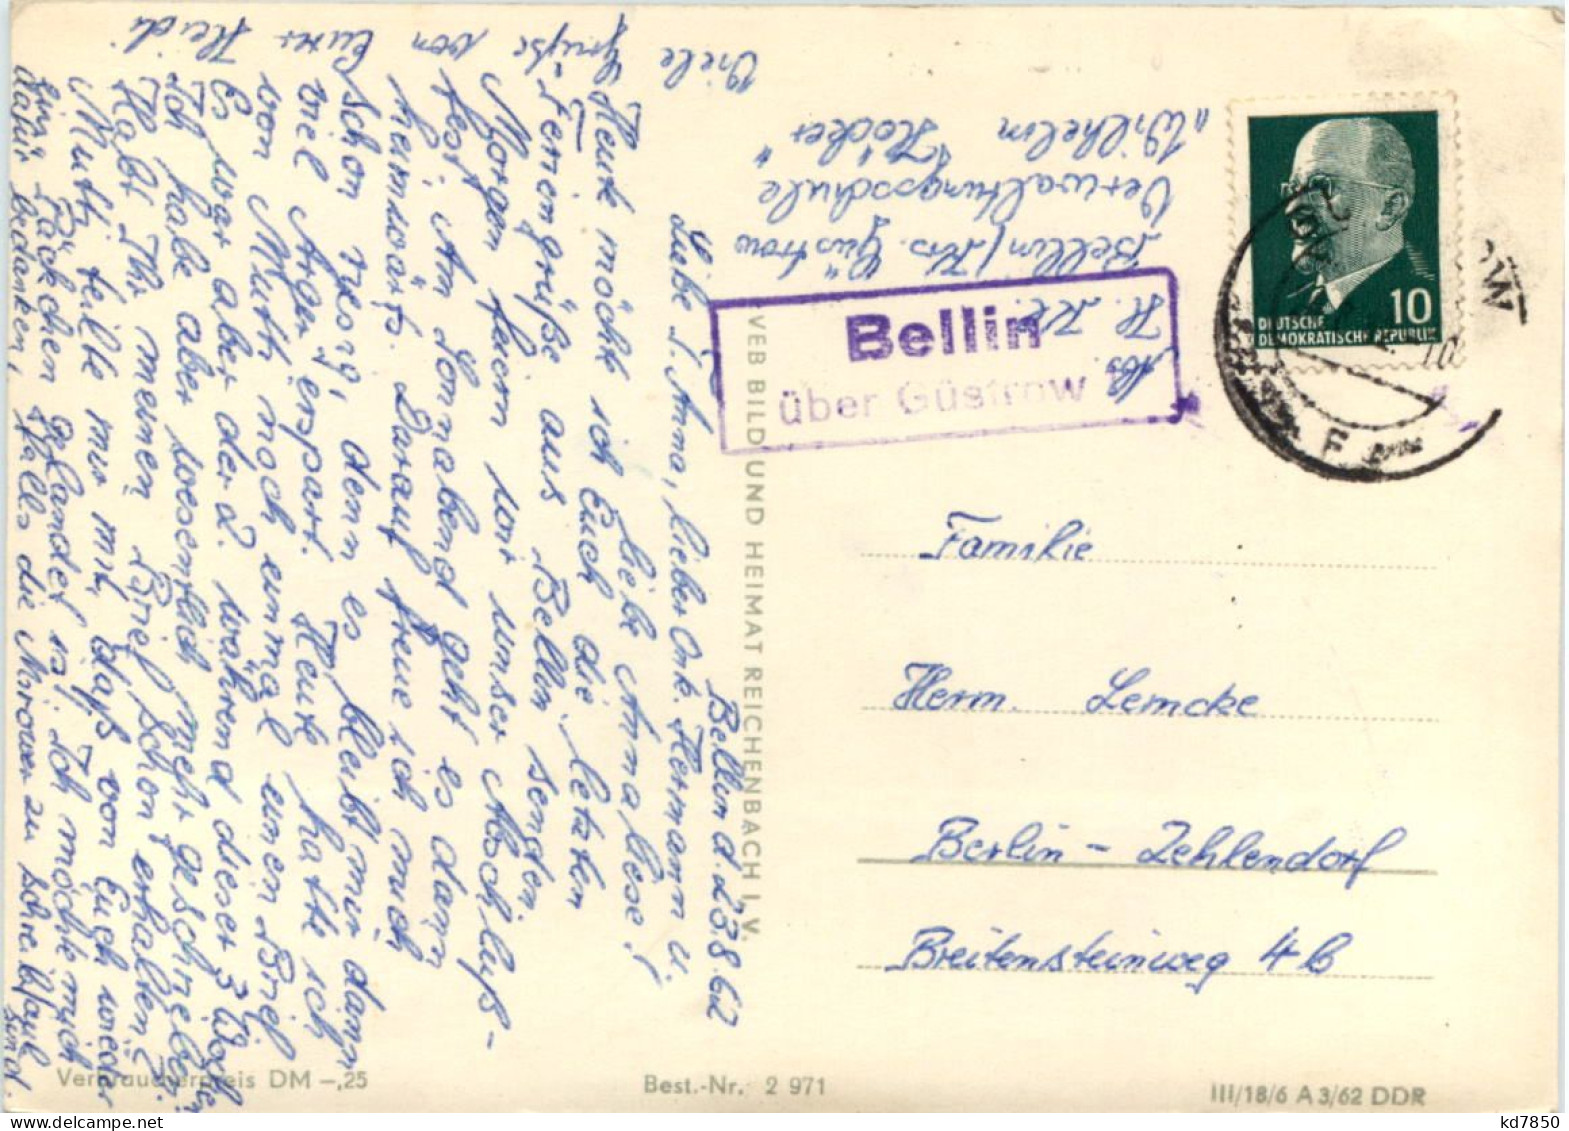 Bellin d. 23.8.62
Liebe T. Anna, lieber Onk. Hermann u.
liebe Annaliese!
Heute möcht ich Euch die letzten
Feriengrüße aus Bellin senden.
Morgen feiern wir unser Abschluß-
fest. Am Sonnabend geht es dann
heimwärts. Darauf freue ich mich
schon riesig, denn es bleibt mir dann
viel Ärger erspart. Heute hatte ich
von Mutti noch einmal einen Brief
Es war aber der 2. während dieser 3 Wochen
Ich habe aber wesentlich mehr geschrieben.
Habt Ihr meinen Brief schon erhalten?
Mutti teilte mir mit, daß von Euch wieder
ein Päckchen gelandet ist. Ich möchte mich
dafür bedanken, falls die zu schreibfaul
sind.
Viele Grüße von Eurer Heidi.
Abs. H.
Bellin / Krs. Güstrow
Verwaltungsschule
"Wilhelm Höcker"
Bellin
über Güstrow
10
DEUTSCHE
DEMOKRATISCHE REPUBLIK
Familie
Herm. Lemcke
Berlin - Zehlendorf
Breitensteinweg 4b
VEB BILD UND HEIMAT REICHENBACH I. V.
Verbraucherpreis DM -,25
Best.-Nr. 2 971
III/18/6 A 3/62 DDR
kd7850